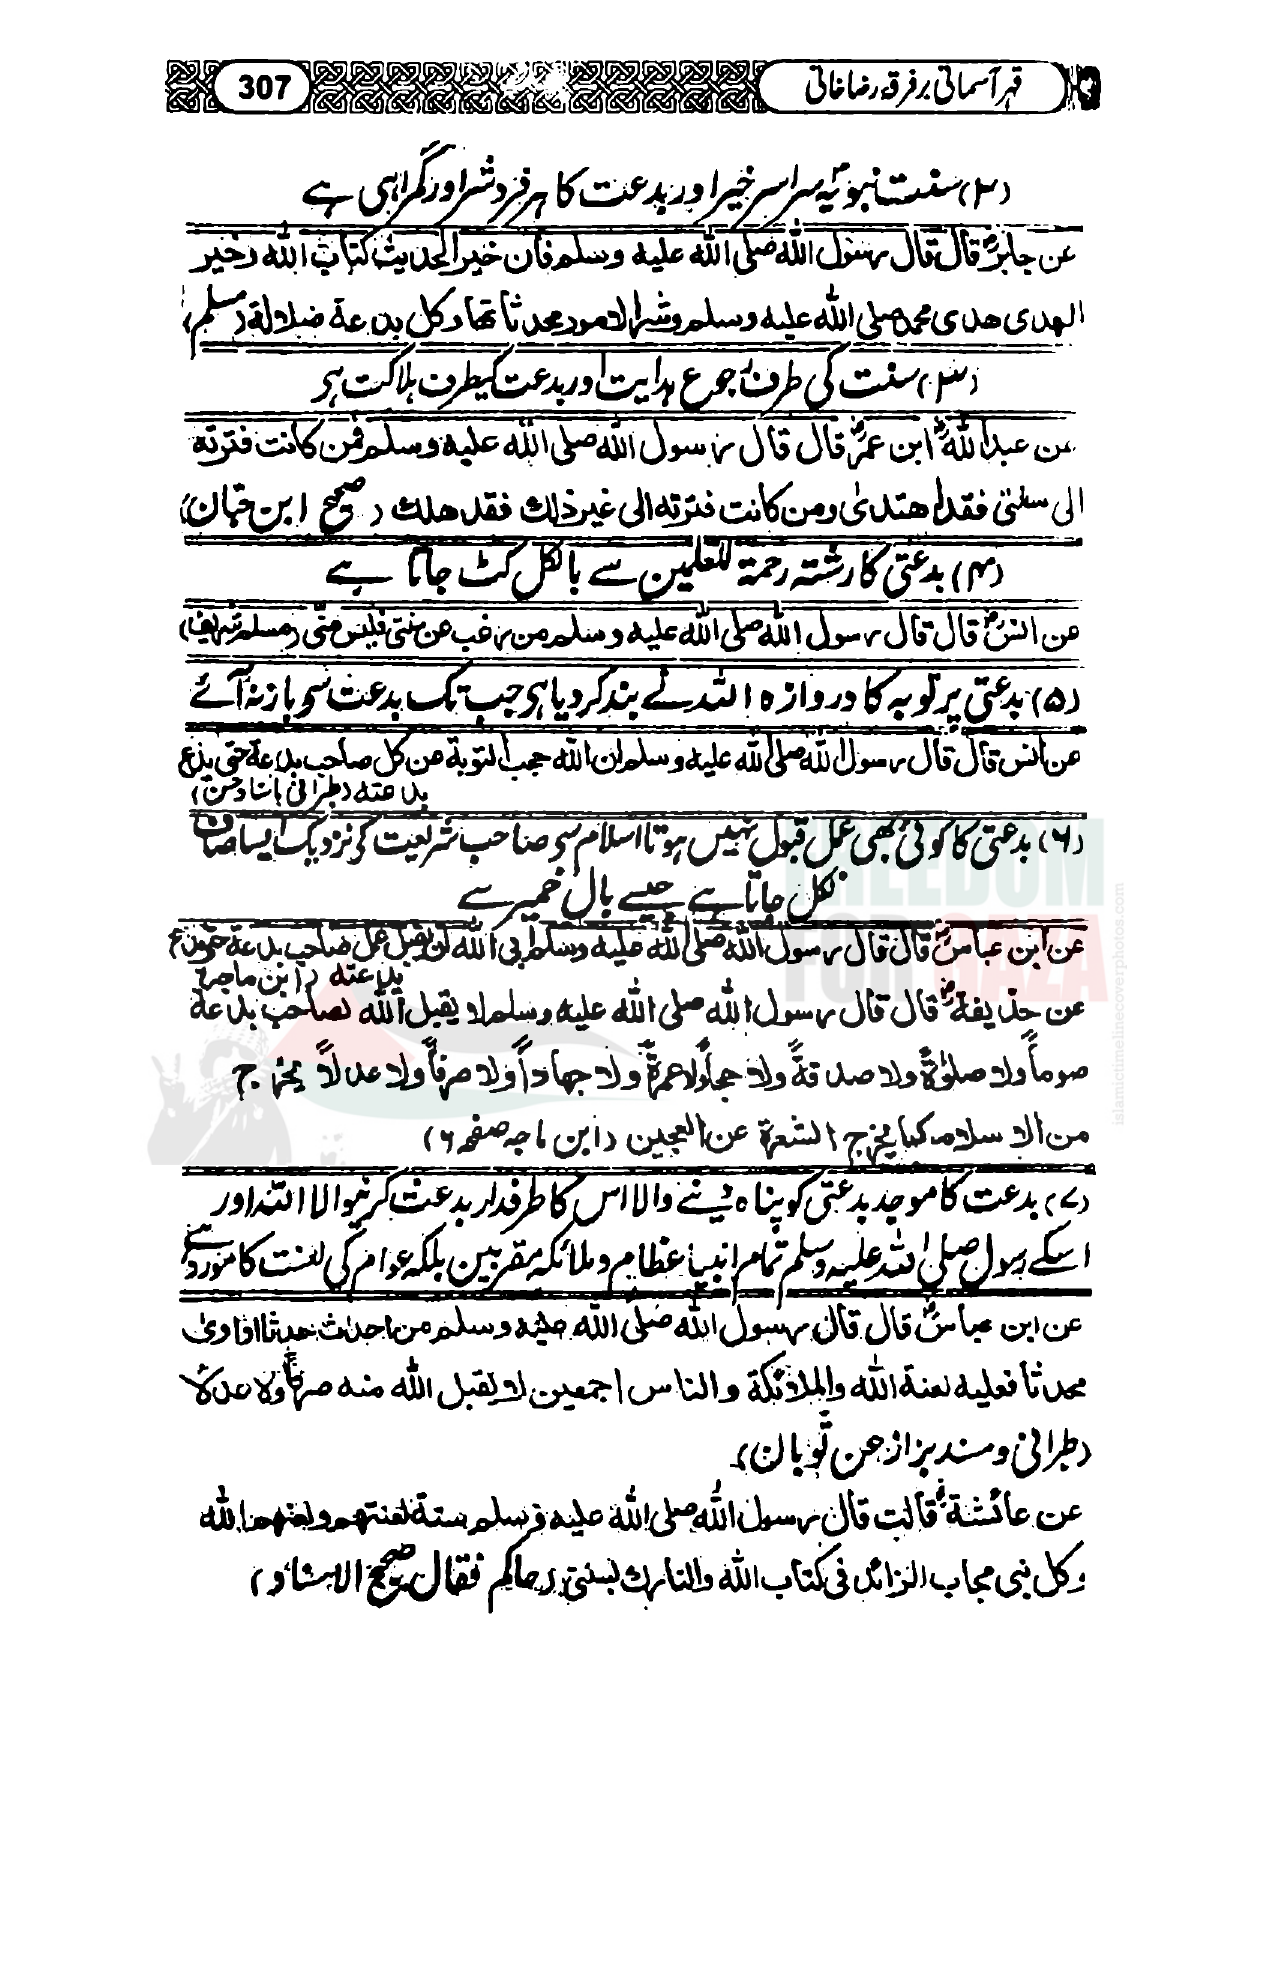 قہر آسمانی بر فرقہ رضاخانی
307
(۲) سنت نبویہ سراسر خیر اور بدعت کا ہر فرد شر اور گمراہی ہے
عن جابرؓ قال قال رسول اللہ صلی اللہ علیہ وسلم فان خیر الحدیث کتاب اللہ وخیر
الہدی ھدی محمد صلی اللہ علیہ وسلم وشر الامور محدثاتھا وکل بدعۃ ضلالۃ (مسلم)
(۳) سنت کی طرف رجوع ہدایت اور بدعت کیطرف ہلاکت ہے
عن عبداللہؓ ابن عمرؓ قال قال رسول اللہ صلی اللہ علیہ وسلم فمن کانت فترتہ
الی سنتی فقد اھتدیٰ ومن کانت فترتہ الی غیر ذلک فقد ھلک (صحیح ابن حبان)
(۴) بدعتی کا رشتہ رحمۃ للعلمین سے بالکل کٹ جاتا ہے
عن انسؓ قال قال رسول اللہ صلی اللہ علیہ وسلم من رغب عن سنتی فلیس منی (مسلم شریف)
(۵) بدعتی پر توبہ کا دروازہ اللہ نے بند کردیا ہے جب تک بدعت سے باز نہ آئے
عن انس قال قال رسول اللہ صلی اللہ علیہ وسلم ان اللہ حجب التوبۃ عن کل صاحب بدعۃ حتی یدع
بدعتہ (طبرانی باسناد حسن)
(۶) بدعتی کا کوئی بھی عمل قبول نہیں ہوتا اسلام سے صاحب شریعت کے نزدیک ایسا صاف
نکل جاتا ہے جیسے بال خمیر سے
عن ابن عباسؓ قال قال رسول اللہ صلی اللہ علیہ وسلم ابی اللہ ان یقبل عمل صاحب بدعۃ حتی یدع
بدعتہ (ابن ماجہ)
عن حذیفۃؓ قال قال رسول اللہ صلی اللہ علیہ وسلم لا یقبل اللہ لصاحب بدعۃ
صوماً ولا صلوٰۃً ولا صدقۃً ولا حجاً ولا عمرۃً ولا جھاداً ولا صرفاً ولا عدلاً یخرج
من الاسلام کما یخرج الشعرۃ عن العجین (ابن ماجہ صفحہ ۶)
(۷) بدعت کا موجد بدعتی کو پناہ دینے والا اس کا طرفدار بدعت کرنیوالا اللہ اور
اسکے رسول صلی اللہ علیہ وسلم تمام انبیا عظام و ملائکہ مقربین بلکہ عوام کی لعنت کا مورد ہے
عن ابن عباسؓ قال قال رسول اللہ صلی اللہ علیہ وسلم من احدث حدثا او اویٰ
محدثاً فعلیہ لعنۃ اللہ والملائکۃ والناس اجمعین لا یقبل اللہ منہ صرفاً ولا عدلاً
(طبرانی و مسند بزاز عن ثوبان)
عن عائشۃؓ قالت قال رسول اللہ صلی اللہ علیہ وسلم ستۃ لعنتھم ولعنھم اللہ
وکل نبی مجاب الزائد فی کتاب اللہ والتارک لسنتی (حاکم فقال صحیح الاسناد)
FREEDOM
FOR GAZA
islamictimelinecoverphotos.com